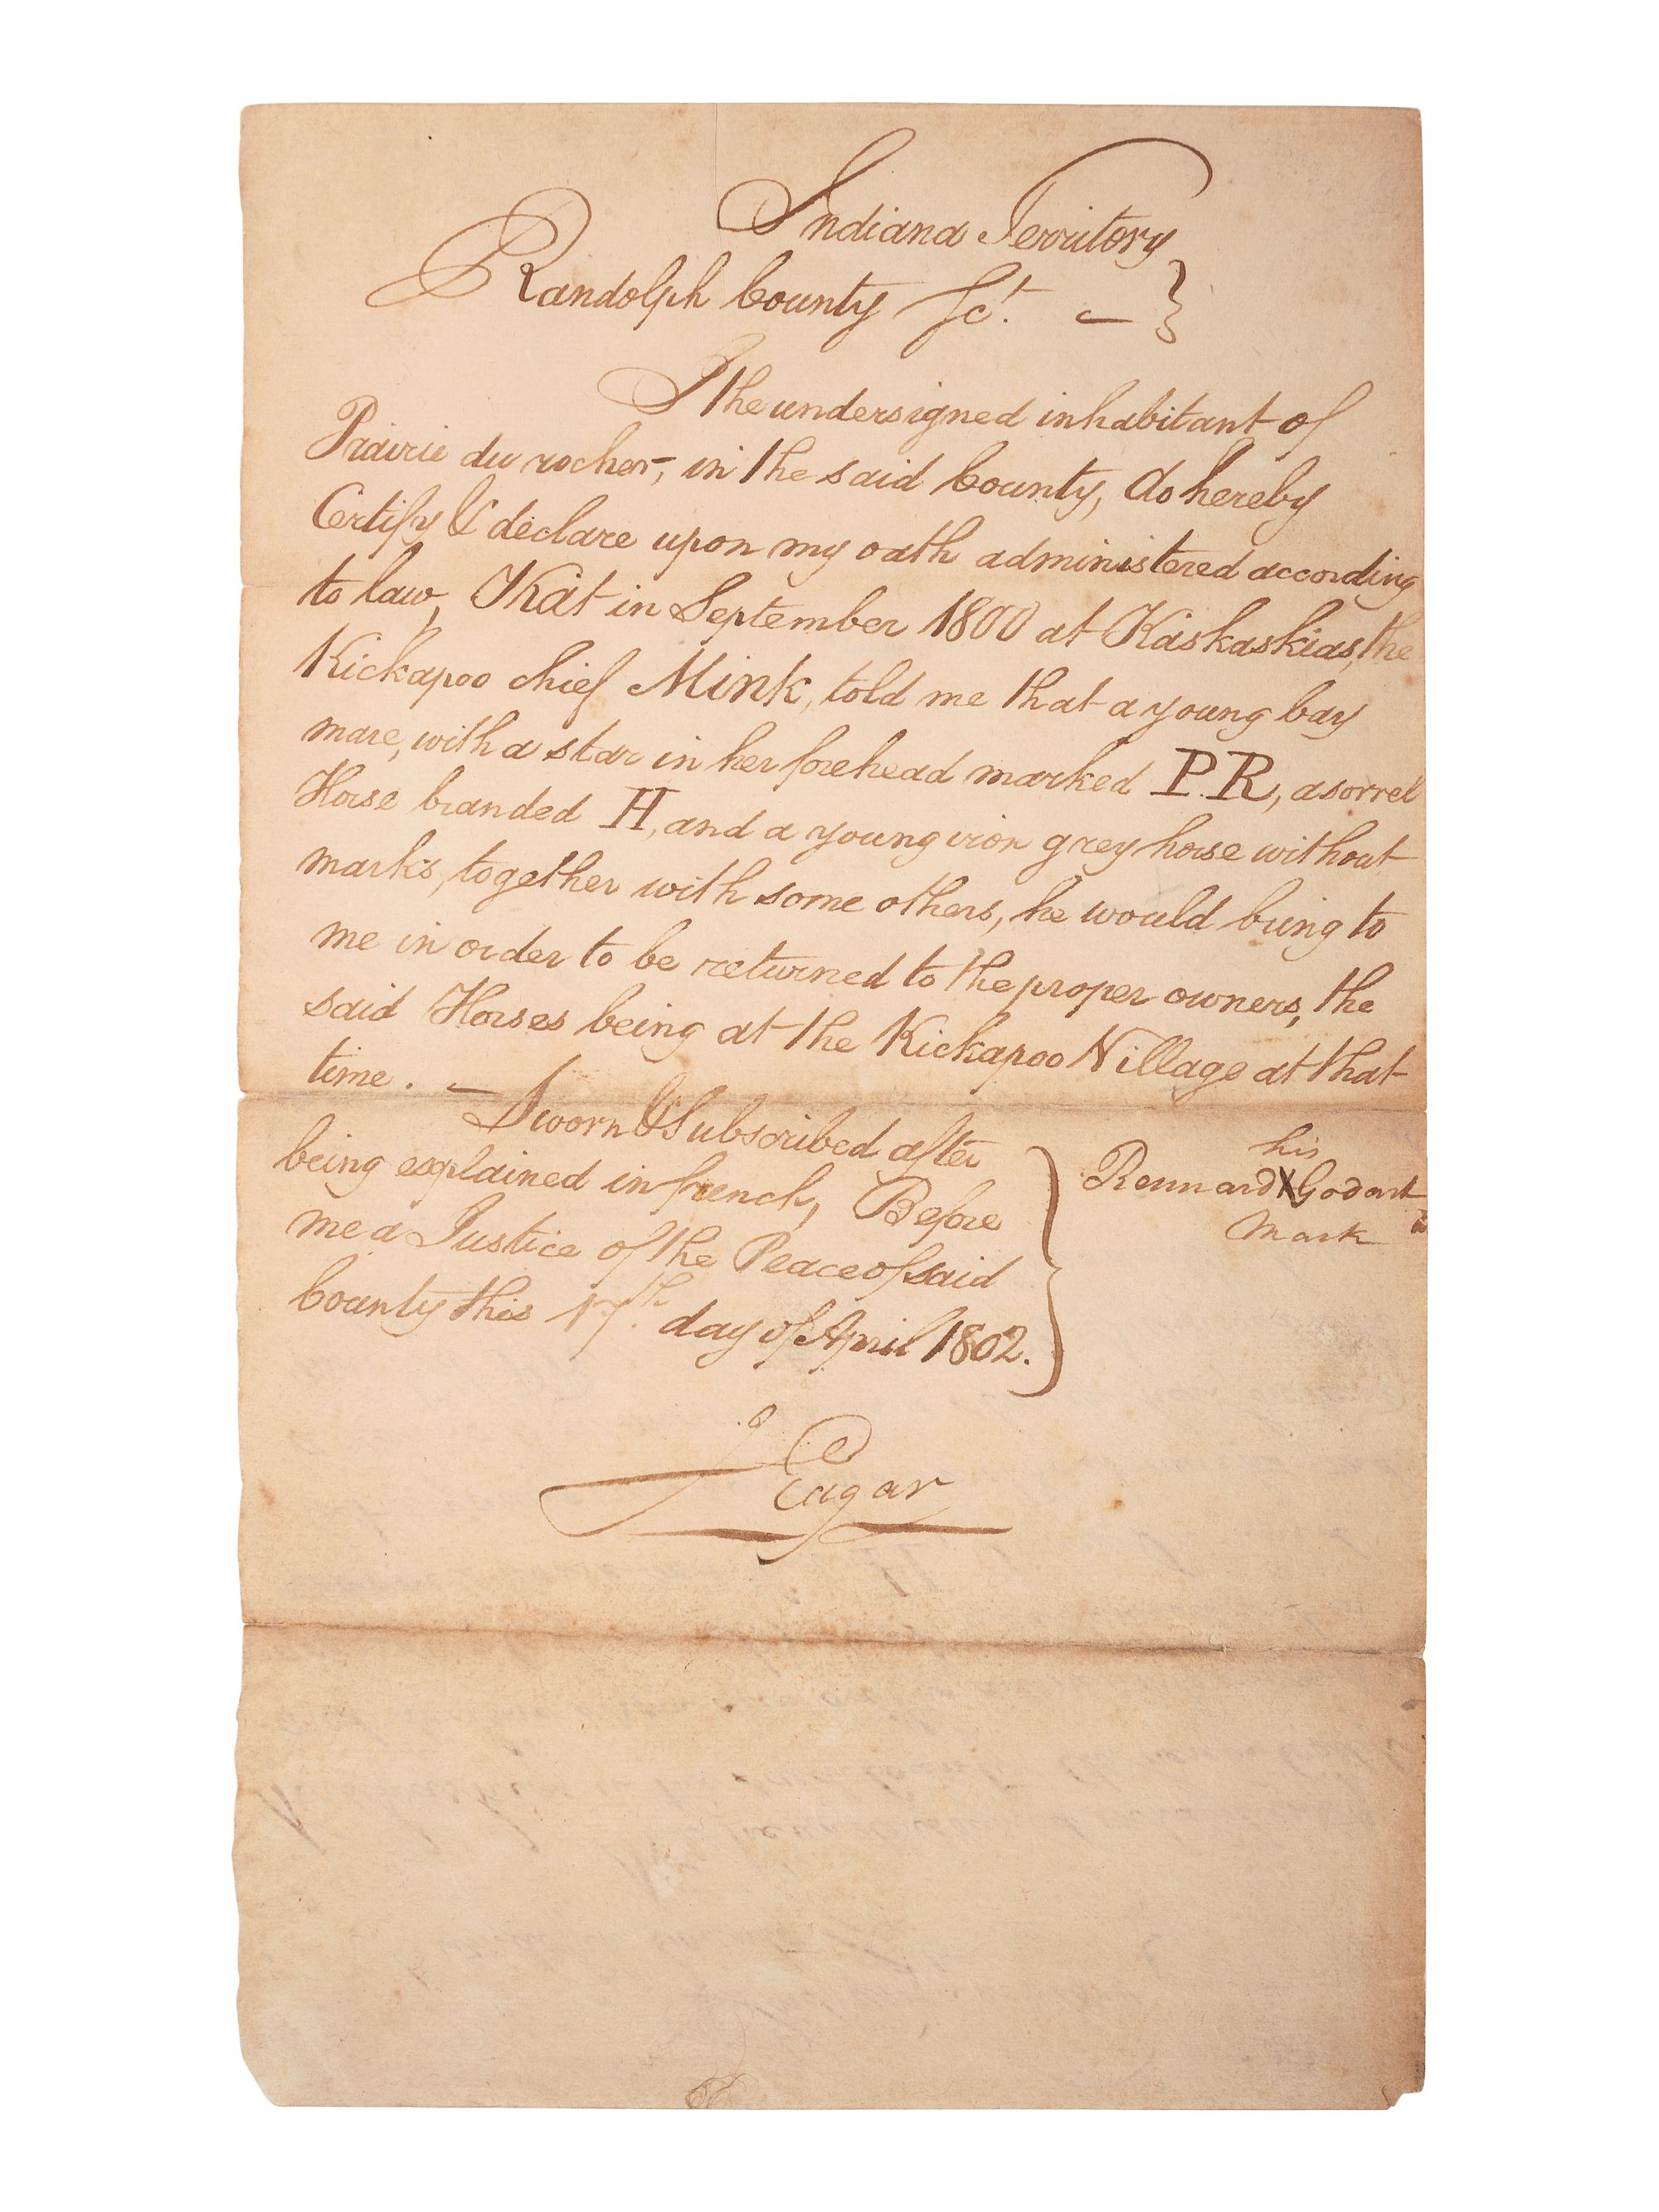 Indiana Territory
Randolph County Sct. }
I the undersigned inhabitant of
Prairie du rocher, in the said County, do hereby
Certify & déclare upon my oath administered according
to law, That in September 1800 at Kaskaskias, the
Kickapoo chief Mink, told me that a young bay
mare, with a star in her forehead marked P.R, a sorrel
Horse branded H, and a young iron grey horse without
marks, together with some others, he would bring to
me in order to be returned to the proper owners, the
said Horses being at the Kickapoo Village at that
time. —
Sworn & Subscribed after
being explained in french, Before
me a Justice of the Peace of said
County this 17th. day of April 1802.
his
Rennard X Godart
mark
J Edgar